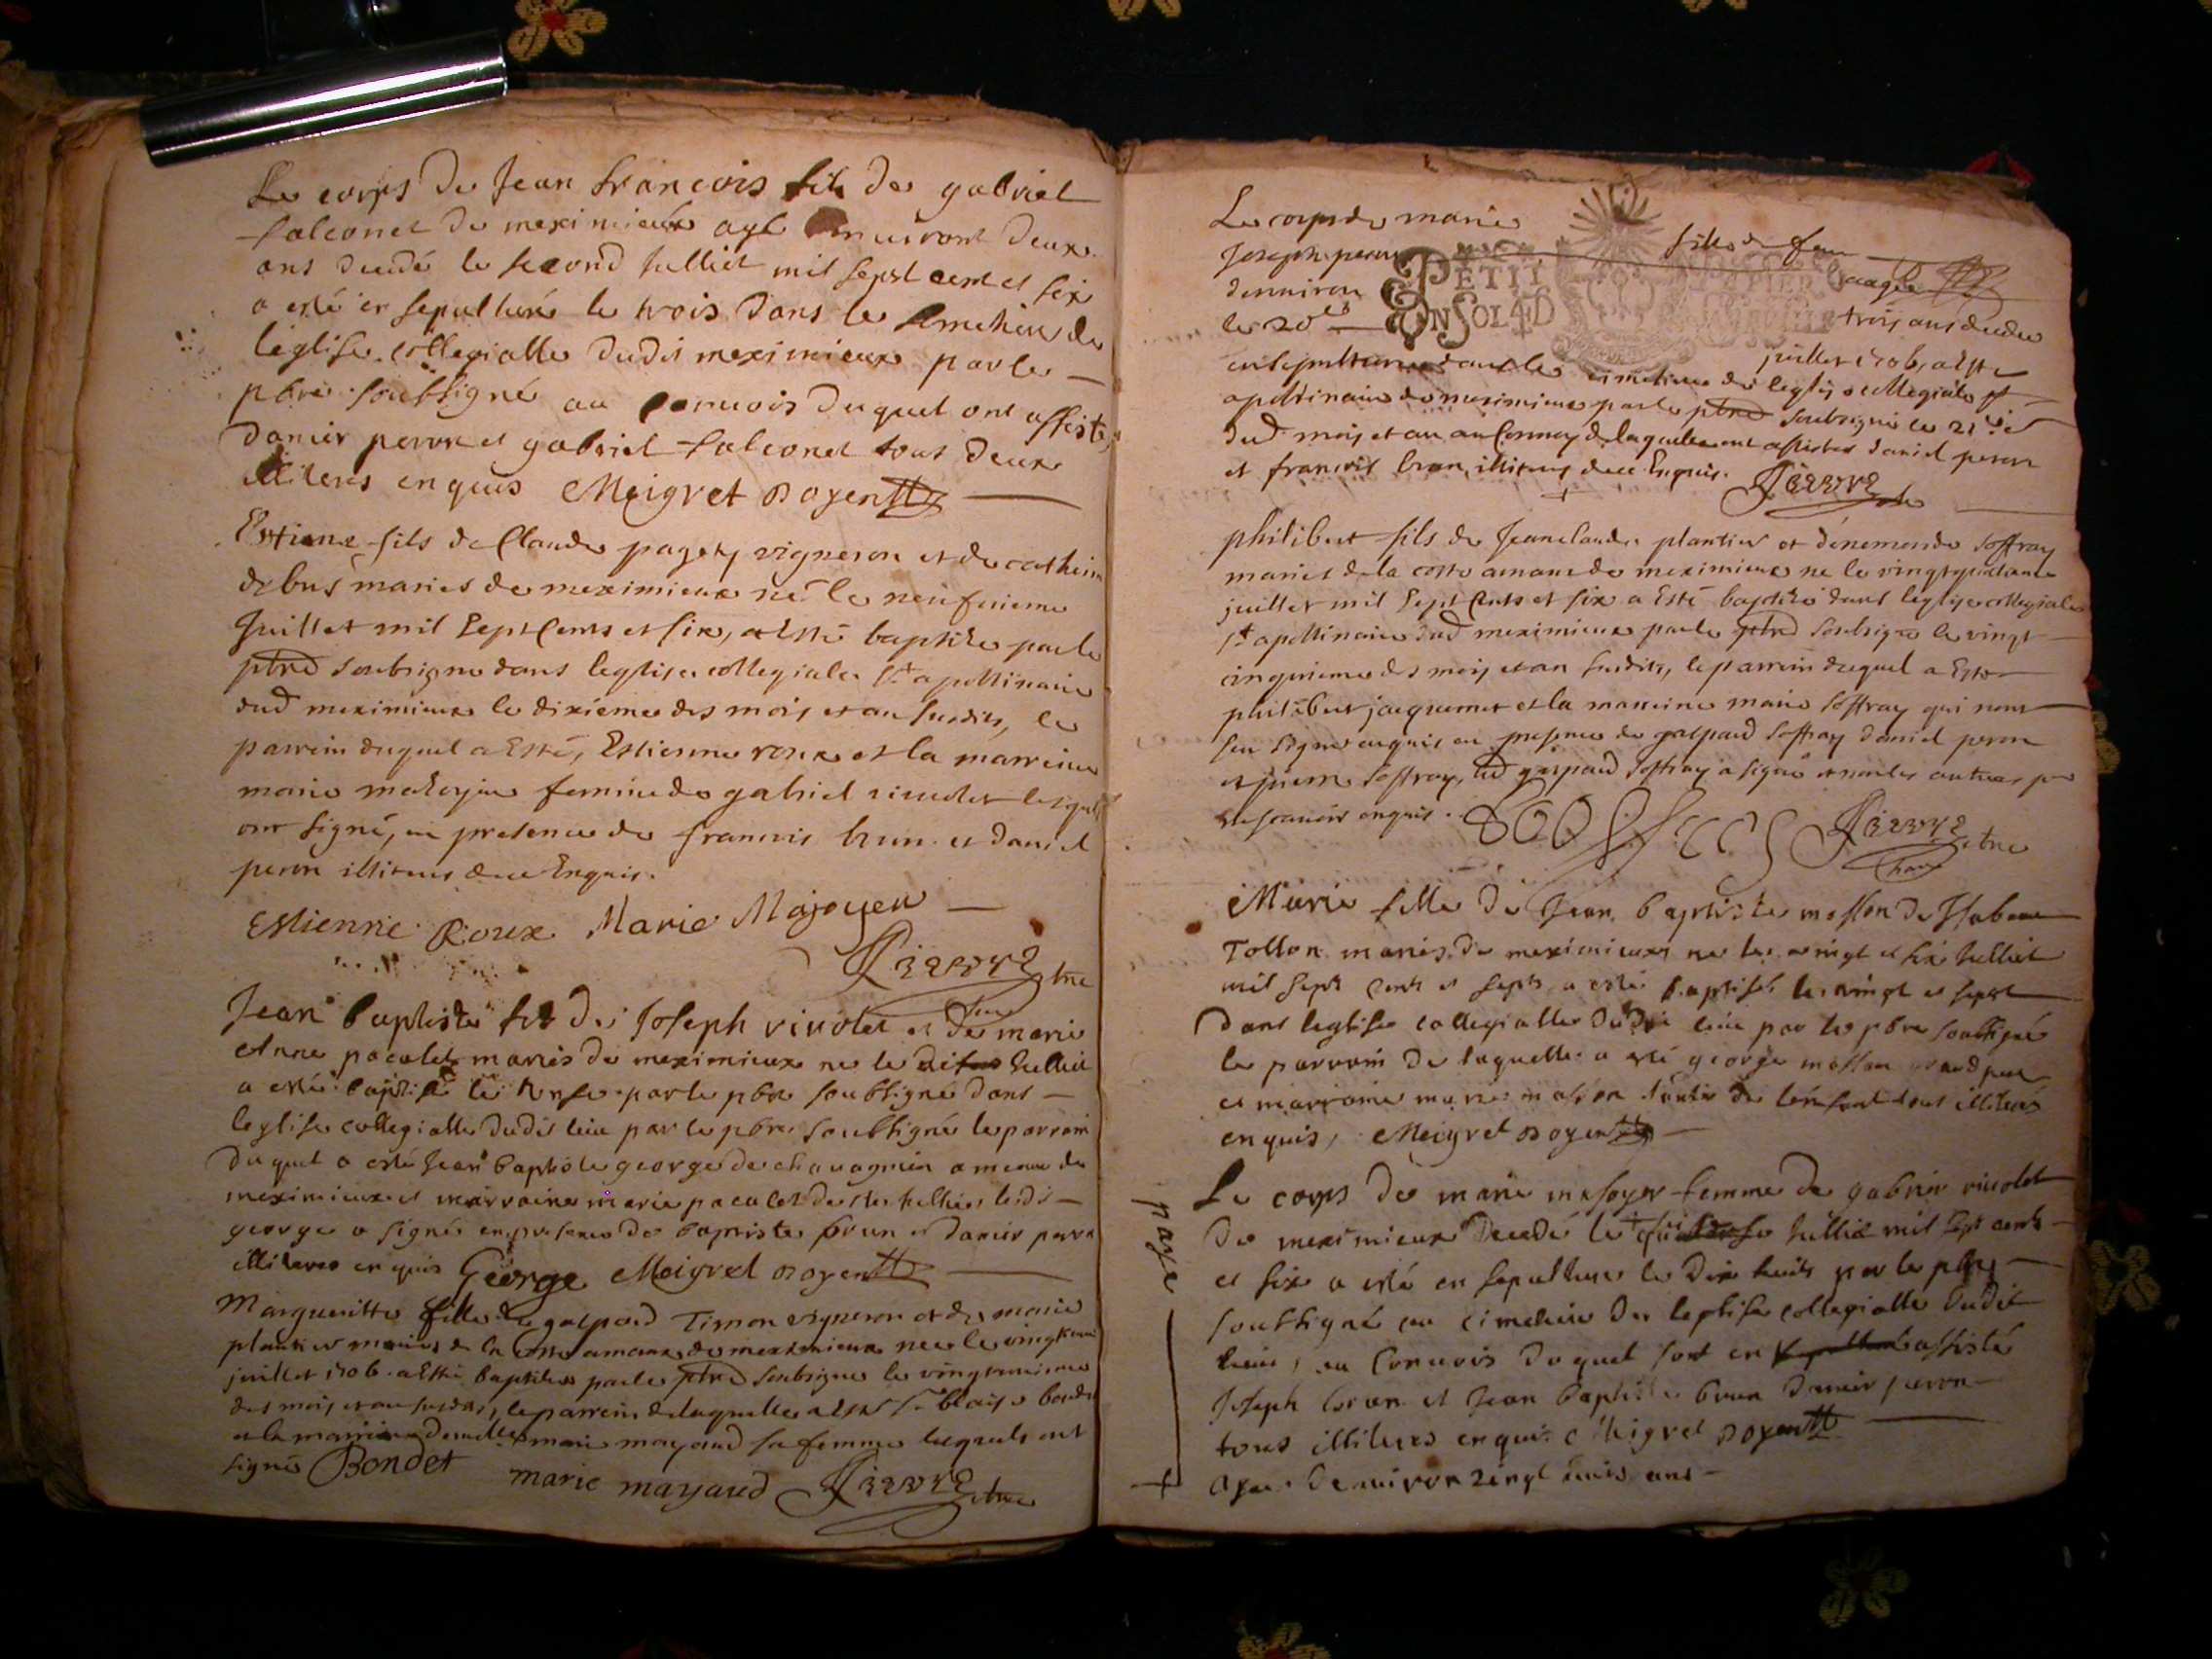 Le corps de Jean francois fils de gabriel
falconet de meximieux agé enuiront deux
ans decedé le second Julliet mil sept cent et six
a esté en sepulturé le trois dans le simetiere de
leglise collegialle dudit meximieux par le
pbre soubsigné au conuois duquel ont assisté
danier peron et gabriel falconet tous deux
illiteres enquis Meigret Doyen
Estiene fils de Claude pagety vigneron et de catherin
debus maries de meximieux né le neufuieme
Juillet mil sept Cents et six, a esté baptize par le
ptre soubsigne dans leglise collegiale St apollinaire
dud meximieux le dixieme des mois et an susdits, le
parrein duquel a Esté, Estienne roux et la marreine
marie femme de gabriel riuolet lesquels
ont signé, en presence de francois brun et daniel
peron illiteres de ce Enquis.
Estienne Roux Marie Majoyer
Jean baptiste fils de Joseph riuolet et de marie
Anne pacalet maries de meximieux ne le Julliet
a esté baptisé le par le pbre soubsigné dans
leglise collegialle dudit lieu par le pbre soubsigné le parrain
duquel a esté Jean baptiste george de chauagnieu
meximieux et marraine marie pacalet ledit
george a signé en presence de baptiste brun et danier peron
illiteres enquis George Meigret Doyen
Margueritte fille de gaspard Timon vigneron et de marie
plantier maries de la Coste amane de meximieux nee le
juillet 1706 a Esté baptizee par le ptre soubsigne le
des mois et an susdits, le parrein de laquelle a Esté Sr blaise bondet
et la marreine marie mayaud sa femme lesquels ont
signé Bondet marie mayaud
Le corps de marie
fille de feu
Joseph peron
PETIT PAPIER
aagée
denuiron
UN SOL
trois ans decedee
le 20
juillet 1706, a Esté
ensepulturee dans le cimetiere de leglise collegiale St
apollinaire de meximieux par le ptre soubsigné le 21
dud mois et an au Conuoy de laquelle ont assistes daniel peron
et francois brun, illiteres de ce Enquis.
philibert fils de Jeanclaude plantier et denemonde soffray
maries de la coste amane de meximieux ne le
juillet mil sept Cents et six a Esté baptize dans leglise collegiale
St apollinaire dud meximieux par le ptre soubsigne le vingt
cinquieme des mois et an susdits, le parrein duquel a Esté
philibert jacquemet et la marreine marie soffray qui nont
sceu signer enquis en presence de gaspard soffray daniel peron
et pierre soffray, led gaspard soffray a signé et non les autres p
ne scauoir enquis.
Marie fille de Jean baptiste masson de Isabeau
Tollon maries de meximieux ne le vingt et six Julliet
mil sept Cents et sept a esté baptisée le vingt et sept
dans leglise collegialle dudit lieu par le pbre soubsigné
le parrain de laquelle a esté george masson grand pere
et marraine marie masson tante de lenfant tous illiteres
enquis, Meigret Doyen
Le corps de marie majoyer femme de gabriel riuolet
de meximieux decedé le Julliet mil sept cents
et six a esté en sepulture le dix huit par le pbre
soubsigné au cimetiere de leglise collegialle dudit
lieu, au Conuois duquel sont en assisté
Joseph brun et Jean baptiste brun danier peron
tous illiteres enquis Meigret Doyen
agee denuiron ans
paye